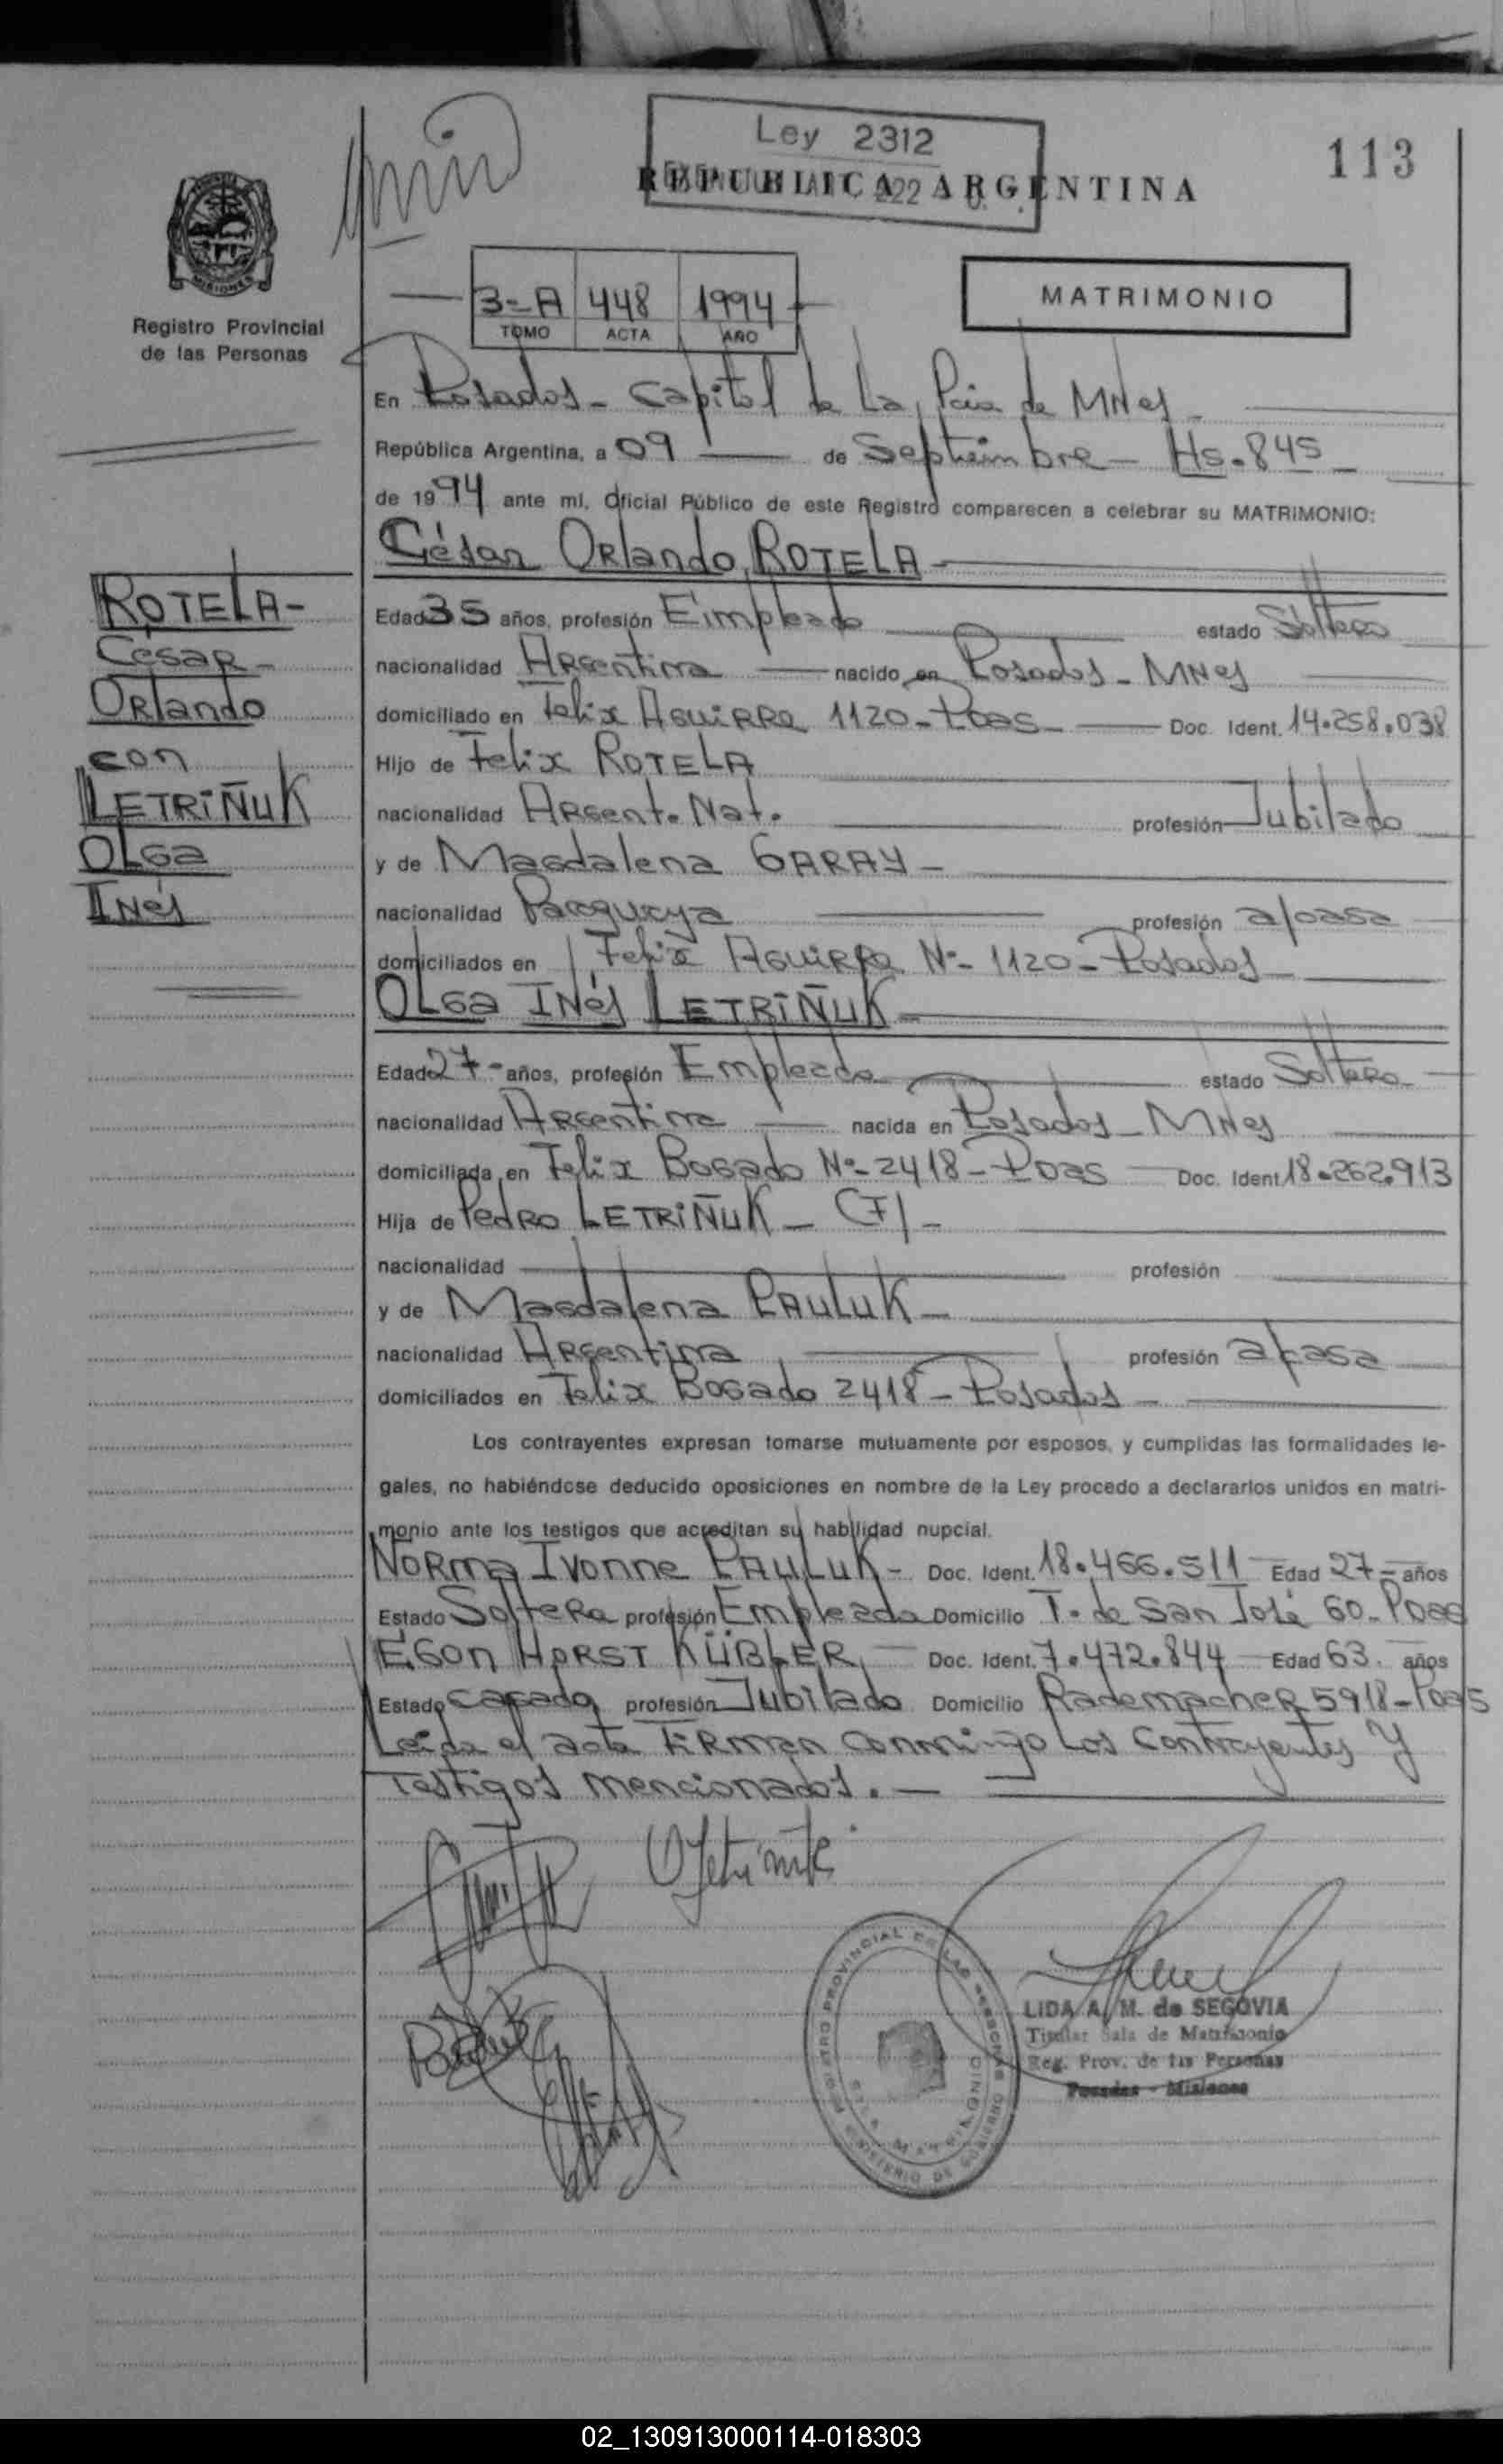 Ley 2312
113
REPUBLICA ARGENTINA
MISIONES
Registro Provincial
de las Personas
3-A 448 1994
TOMO ACTA AÑO
MATRIMONIO
En Posadas - Capital de La Pcia de MNes -
República Argentina, a 09 de Septiembre - Hs. 845 -
de 1994 ante mí, Oficial Público de este Registro comparecen a celebrar su MATRIMONIO:
César Orlando ROTELA -
ROTELA -
César -
Orlando
con
LETRIÑUK
OLGA
INés
Edad 35 años, profesión Empleado estado Soltero
nacionalidad Argentina nacido en Posadas - MNes
domiciliado en Felix Aguirre 1120 - Pdas - Doc. Ident. 14.258.038
Hijo de Felix ROTELA
nacionalidad Argent. Nat. profesión Jubilado
y de Magdalena GARAY -
nacionalidad Paraguaya profesión a/casa
domiciliados en Felix Aguirre Nº - 1120 - Posadas
OLGA INés LETRIÑUK -
Edad 27 - años, profesión Empleada estado Soltera
nacionalidad Argentina nacida en Posadas - MNes
domiciliada en Felix Bogado Nº - 2418 - Pdas Doc. Ident. 18.262.913
Hija de Pedro LETRIÑUK - (F) -
nacionalidad profesión
y de Magdalena PAULUK -
nacionalidad Argentina profesión a/casa
domiciliados en Felix Bogado 2418 - Posadas -
Los contrayentes expresan tomarse mutuamente por esposos, y cumplidas las formalidades le-
gales, no habiéndose deducido oposiciones en nombre de la Ley procedo a declararlos unidos en matri-
monio ante los testigos que acreditan su habilidad nupcial.
Norma Ivonne PAULUK - Doc. Ident. 18.466.511 Edad 27 - años
Estado Soltera profesión Empleada Domicilio T. de San José 60 - Pdas
EGon HORST KÜBLER Doc. Ident. 7.472.844 Edad 63. años
Estado casado profesión Jubilado Domicilio Rademacher 5918 - Pdas
Leida el acta firman conmigo Los Contrayentes Y
Testigos mencionados. -
LIDA A. M. de SEGOVIA
Titular Sala de Matrimonio
Reg. Prov. de las Personas
Posadas - Misiones
02_130913000114-018303